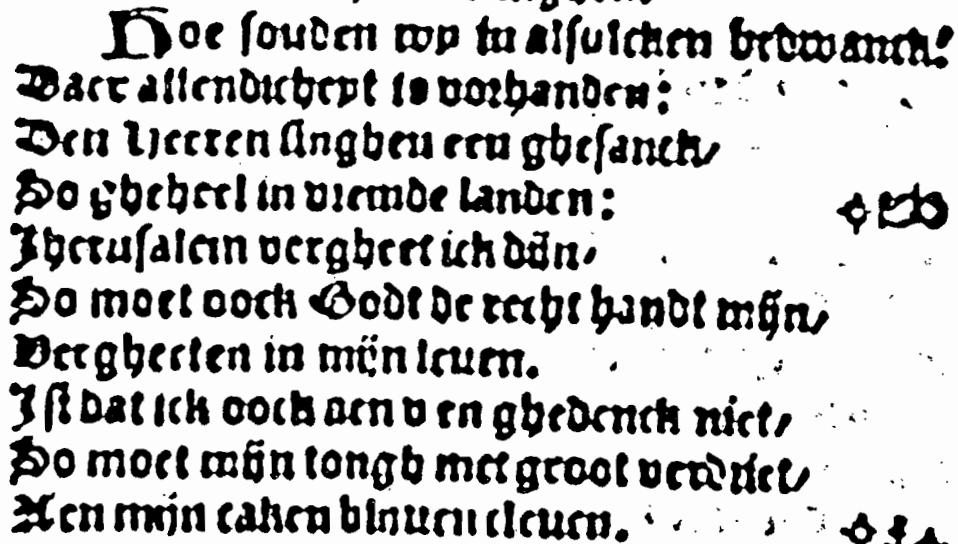 Hoe souden wy in alsulcken bedwanck!
Daer allendicheyt is voorhanden:
Den Heeren singhen een ghesanck/
So gheheel in vremde landen:
Iherusalem vergheet ick dijn/
So moet oock Godt de recht handt mijn/
Vergheeten in mijn leuen.
Ist dat ick oock aen v en ghedenck niet/
So moet mijn tongh met groot verdriet/
Aen mijn caken blijuen cleuen.